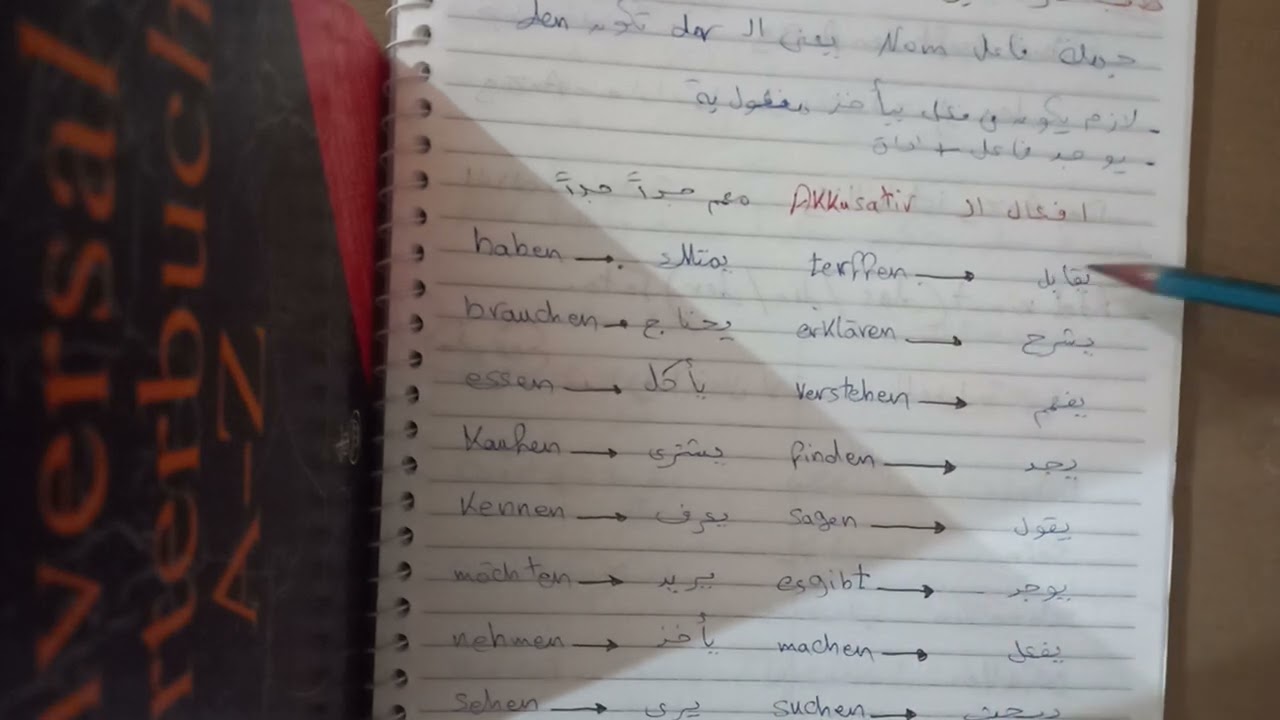 جملة فاعل Nom يعني الـ der تكون den
. لازم يكون في فعل بيأخذ مفعول به
. يوجد فاعل + أداة
افعال الـ AKKusativ مهم جداً جداً
haben → يمتلك terffen → يقابل
brauchen → يحتاج erklären → يشرح
essen → يأكل verstehen → يفهم
Kaufen → يشترى finden → يجد
Kennen → يعرف sagen → يقول
möchten → يريد esgibt → يوجد
nehmen → يأخذ machen → يفعل
sehen → يرى suchen → يبحث
A-Z